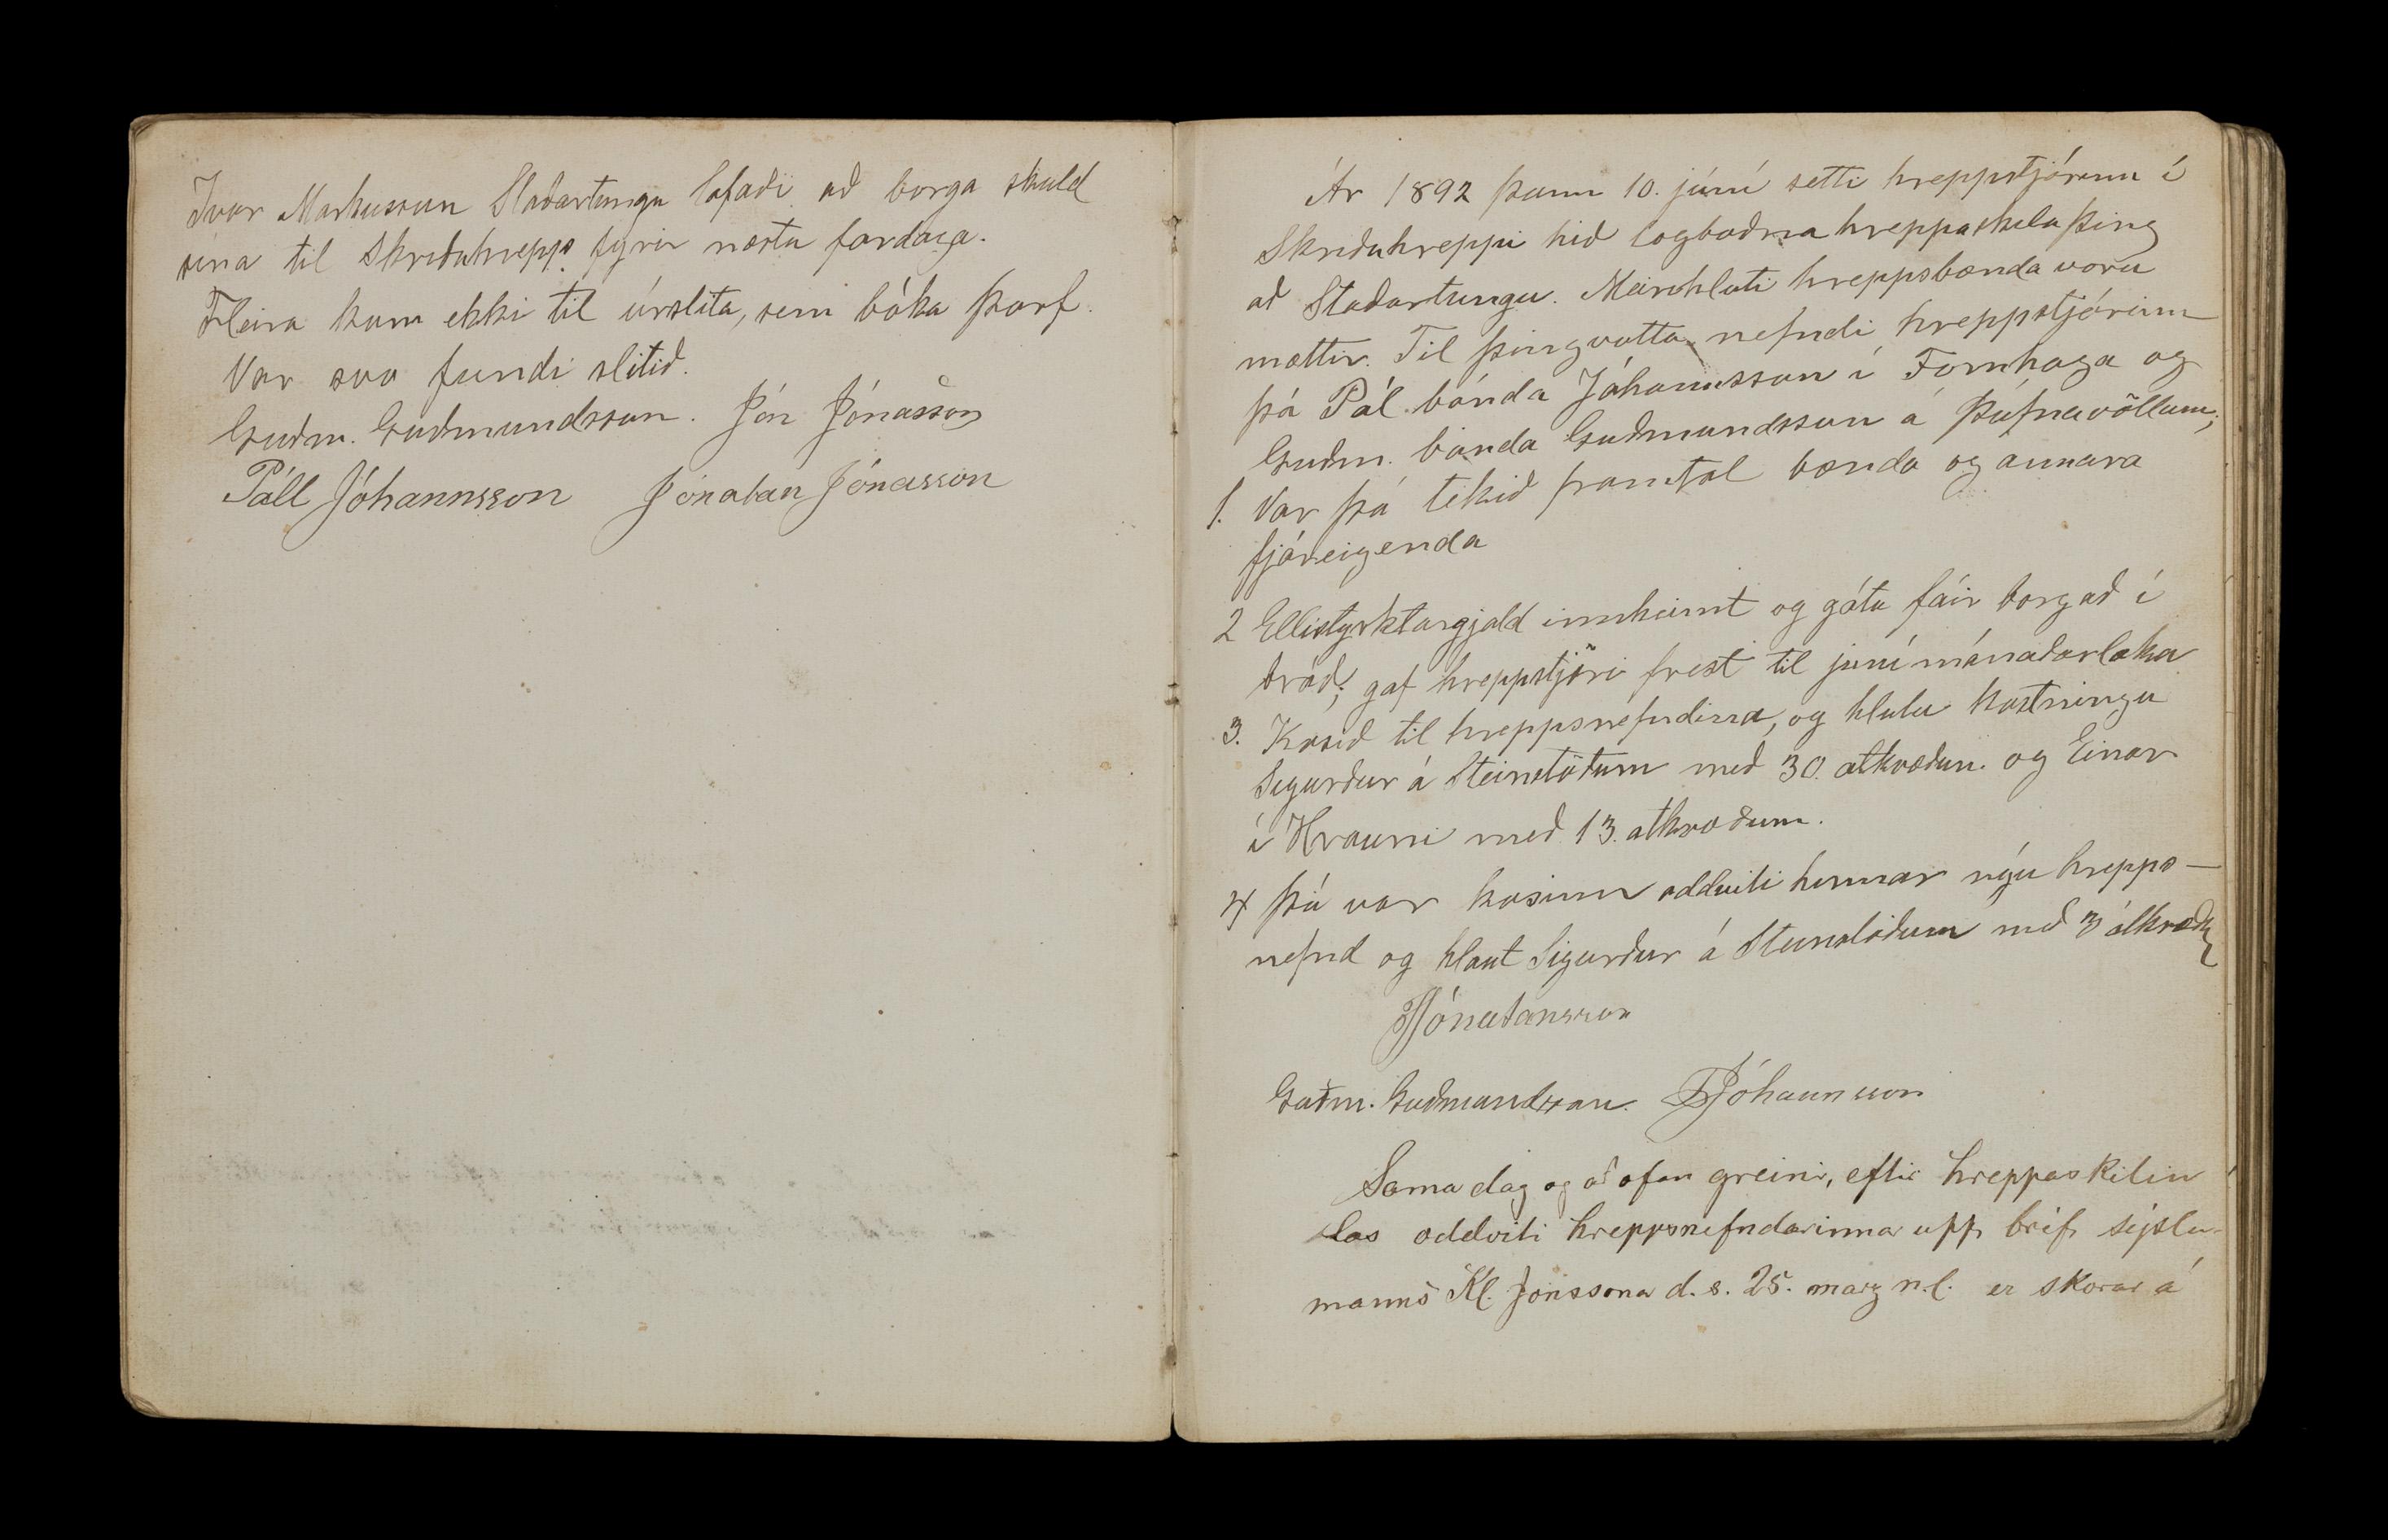 Ivar Markusson Staðartungu lofaði að borga skuld
sína til Skriðuhrepps fyrir næstu fardaga.
Fleira kom ekki til úrslita, sem bóka þarf.
Var svo fundi slitið.
Guðm. Guðmundsson. Jón Jónasson
Páll Jóhannsson Jónatan Jónasson
Ár 1892 þann 10. júní setti hreppstjórinn í
Skriðuhreppi hið logboðna hreppaskilaþing
að Staðartungu. Meirihluti hreppsbænda voru
mættir. Til þingvotta nefndi hreppstjórinn
þá Pál bónda Jóhannsson í Fornhaga og
Guðm. bónda Guðmundsson á Þúfnavöllum;
1. Var þá tekið framtal bænda og annara
fjáreigenda
2 Ellistyrktargjald innheimt og gátu fáir borgað í
bráð; gaf hreppstjóri frest til júní mánaðarloka
3. Kosið til hreppsnefndina, og hlutu kostningu
Sigurður á Steinstöðum með 30. atkvæðun. og Einar
í Hrauni með 13. atkvæðum.
4 Þá var kosinn oddviti hinnar nýu hrepps-
nefnd og hlaut Sigurður á Steinstöðum með 3 atkvæð
JJónatansson
Guðm. Guðmundsson. PJóhannsson
Sama dag og að ofan greinir, eftir hreppaskilin
las oddviti hreppsnefndarinnar upp brjef sýslu-
manns Kl. Jónssonar d. s. 25. marz n.l. er skorar á